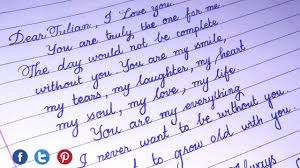 Dear Julian, I Love you.
You are truly, the one for me
The day would not be complete
without you You are my smile,
my tears, my laughter, my heart
my soul, my love, my life.
You are my everything
I never want to be without you.
t to grow old with you
Always